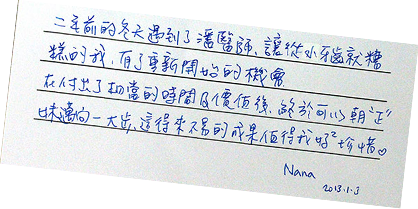 二年前的冬天遇到了潘醫師,讓從小牙齒就糟
糕的我,有了重新開始的機會
在付出了相當的時間及價值後,終於可以朝"正"
妹邁向一大步,這得來不易的成果值得我好²珍惜♡
Nana
2013.1.3